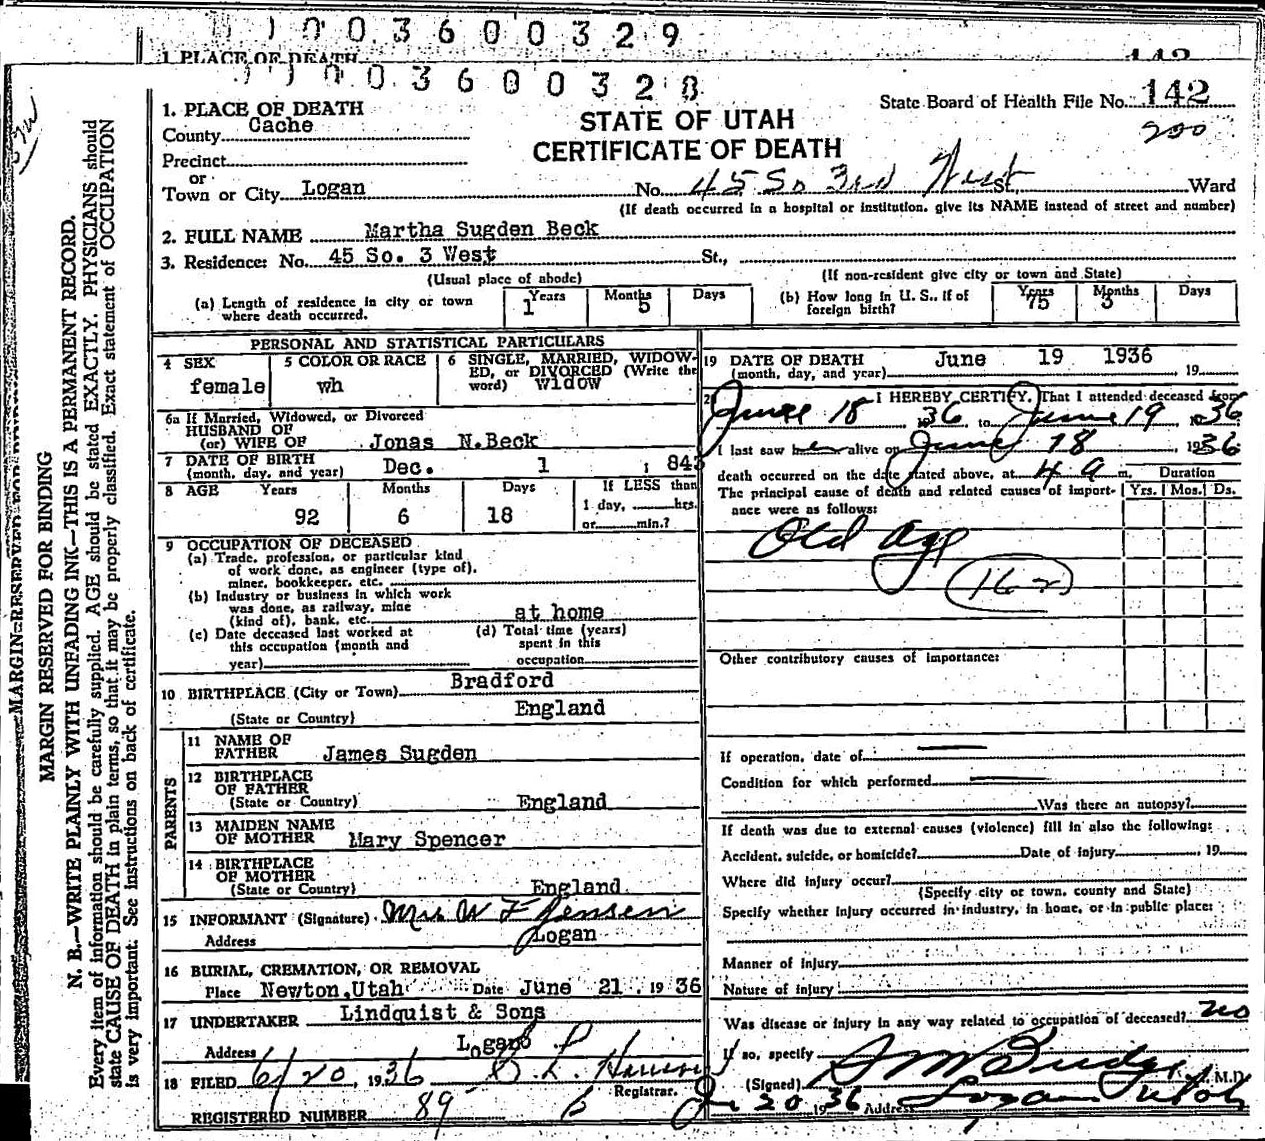 1003600329
1 PLACE OF DEATH
142
1003600328
State Board of Health File No. 142
200
1. PLACE OF DEATH
County Cache
STATE OF UTAH
CERTIFICATE OF DEATH
Precinct
or
Town or City Logan No. 45 So 3rd West St. Ward
(If death occurred in a hospital or institution, give its NAME instead of street and number)
2. FULL NAME Martha Sugden Beck
3. Residence: No. 45 So. 3 West St.,
(Usual place of abode) (If non-resident give city or town and State)
(a) Length of residence in city or town where death occurred. Years 1 Months 5 Days
(b) How long in U. S., if of foreign birth? Years 75 Months 3 Days
PERSONAL AND STATISTICAL PARTICULARS
4 SEX female
5 COLOR OR RACE wh
6 SINGLE, MARRIED, WIDOW-
ED, or DIVORCED (Write the
word) widow
6a If Married, Widowed, or Divorced
HUSBAND OF
(or) WIFE OF Jonas N.Beck
7 DATE OF BIRTH
(month, day, and year) Dec. 1 , 843
8 AGE Years Months Days If LESS than
92 6 18 1 day, hrs.
or min.?
9 OCCUPATION OF DECEASED
(a) Trade, profession, or particular kind
of work done, as engineer (type of),
miner, bookkeeper, etc.
(b) Industry or business in which work
was done, as railway, mine
(kind of), bank, etc. at home
(c) Date deceased last worked at
this occupation (month and
year)
(d) Total time (years)
spent in this
occupation
10 BIRTHPLACE (City or Town) Bradford
(State or Country) England
PARENTS
11 NAME OF
FATHER James Sugden
12 BIRTHPLACE
OF FATHER
(State or Country) England
13 MAIDEN NAME
OF MOTHER Mary Spencer
14 BIRTHPLACE
OF MOTHER
(State or Country) England
15 INFORMANT (Signature) Mrs W F Jensen
Address Logan
16 BURIAL, CREMATION, OR REMOVAL
Place Newton,Utah Date June 21. 19 36
17 UNDERTAKER Lindquist & Sons
Address Logan
18 FILED 6/20, 1936
Registrar.
REGISTERED NUMBER 89
19 DATE OF DEATH June 19 1936
(month, day, and year) , 19
I HEREBY CERTIFY, That I attended deceased from
June 18 , 36 to June 19 , 1936
I last saw h er alive on June 18 , 1936
death occurred on the date stated above, at 4 a m. Duration
The principal cause of death and related causes of import- Yrs. Mos. Ds.
ance were as follows:
Old Age
162
Other contributory causes of importance:
If operation, date of
Condition for which performed
Was there an autopsy?
If death was due to external causes (violence) fill in also the following:
Accident, suicide, or homicide? Date of injury , 19
Where did injury occur?
(Specify city or town, county and State)
Specify whether injury occurred in industry, in home, or in public place:
Manner of injury
Nature of injury
Was disease or injury in any way related to occupation of deceased? no
If so, specify
(Signed) M.D.
20 1936 Address Logan Utah
MARGIN RESERVED FOR BINDING
N. B.—WRITE PLAINLY WITH UNFADING INK—THIS IS A PERMANENT RECORD.
Every item of information should be carefully supplied. AGE should be stated EXACTLY. PHYSICIANS should
state CAUSE OF DEATH in plain terms, so that it may be properly classified. Exact statement of OCCUPATION
is very important. See instructions on back of certificate.